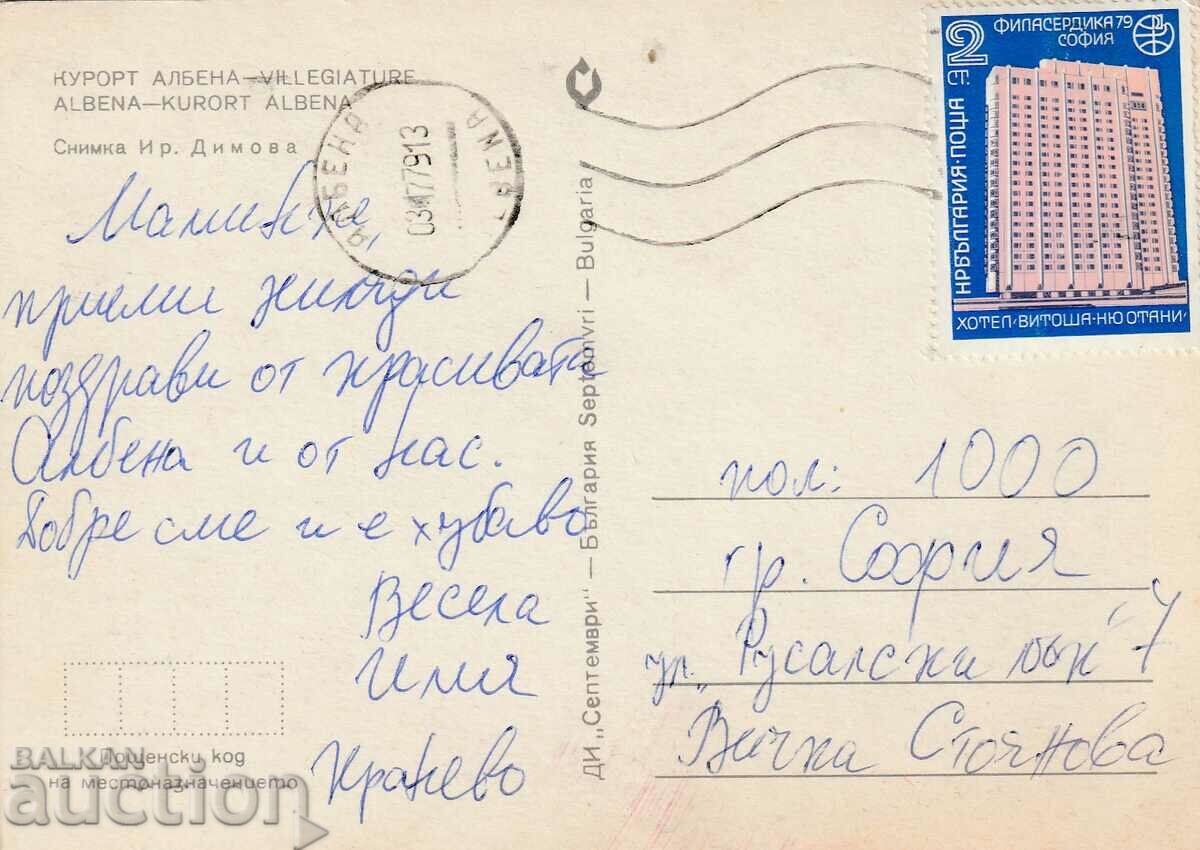 КУРОРТ АЛБЕНА—VILLEGIATURE
ALBENA—KURORT ALBENA
Снимка Ир. Димова
АЛБЕНА
7913
Маминке,
приеми хиляди
поздрави от красивата
Албена и от нас.
Добре сме и е хубаво
Весела
Илия
Кранево
Пощенски код
на местоназначението
BALKAN
auction
ДИ „Септември" — България Septemvri — Bulgaria
2 СТ.
ФИЛАСЕРДИКА 79
СОФИЯ
НР БЪЛГАРИЯ·ПОЩА
ХОТЕЛ „ВИТОША-НЮ ОТАНИ"
пол: 1000
гр. София
ул. „Русалски 7
Вичка Стоянова